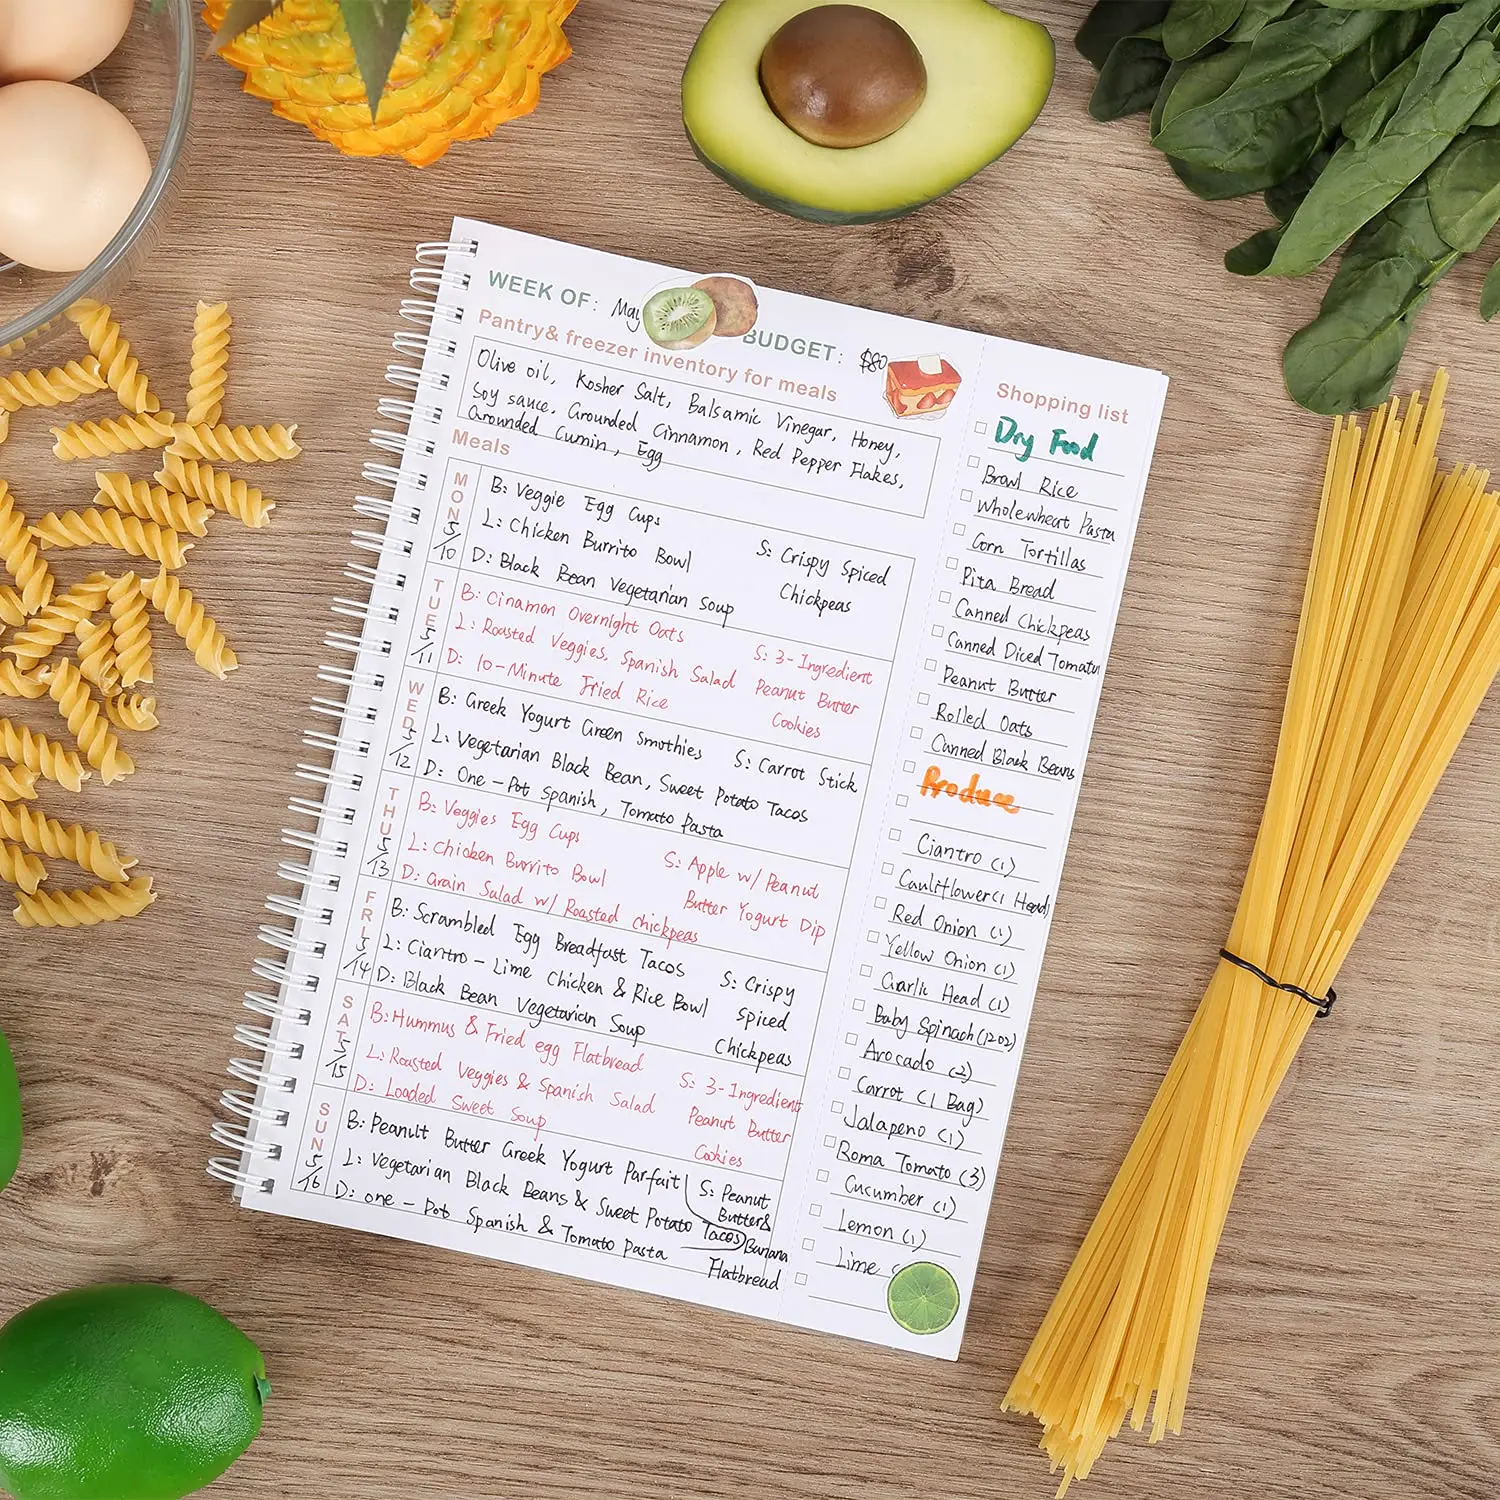 WEEK OF: May
BUDGET: $80
Pantry& freezer inventory for meals
Olive oil, Kosher Salt, Balsamic Vinegar, Honey,
Soy sauce, Grounded Cinnamon, Red Pepper Flakes,
Grounded Cumin, Egg
Meals
MON 5/10
B: Veggie Egg Cups
L: Chicken Burrito Bowl
D: Black Bean Vegetarian Soup
S: Crispy Spiced
Chickpeas
TUE 5/11
B: Cinamon Overnight Oats
L: Roasted Veggies, Spanish Salad
D: 10-Minute Fried Rice
S: 3-Ingredient
Peanut Butter
Cookies
WED 5/12
B: Greek Yogurt Green Smothies
L: Vegetarian Black Bean, Sweet Potato Tacos
D: One-Pot Spanish, Tomato Pasta
S: Carrot Stick
THU 5/13
B: Veggies Egg Cups
L: Chicken Burrito Bowl
D: Grain Salad w/ Roasted chickpeas
S: Apple w/ Peanut
Butter Yogurt Dip
FRI 5/14
B: Scrambled Egg Breadfast Tacos
L: Ciantro-Lime Chicken & Rice Bowl
D: Black Bean Vegetarian Soup
S: Crispy
Spiced
Chickpeas
SAT 5/15
B: Hummus & Fried egg Flatbread
L: Roasted Veggies & Spanish Salad
D: Loaded Sweet Soup
S: 3-Ingredient
Peanut Butter
Cookies
SUN 5/16
B: Peanult Butter Greek Yogurt Parfait
L: Vegetarian Black Beans & Sweet Potato Tacos
D: one-Pot Spanish & Tomato Pasta
S: Peanut
Butter&
Banana
Flatbread
Shopping list
Dry Food
Browl Rice
Wholewheart Pasta
Corn Tortillas
Pita Bread
Canned Chickpeas
Canned Diced Tomatu
Peanut Butter
Rolled Oats
Canned Black Beans
Produce
Ciantro (1)
Cauliflower (1 Head)
Red Onion (1)
Yellow Onion (1)
Garlic Head (1)
Baby Spinach (12oz)
Avocado (2)
Carrot (1 Bag)
Jalapeno (1)
Roma Tomato (3)
Cucumber (1)
Lemon (1)
Lime